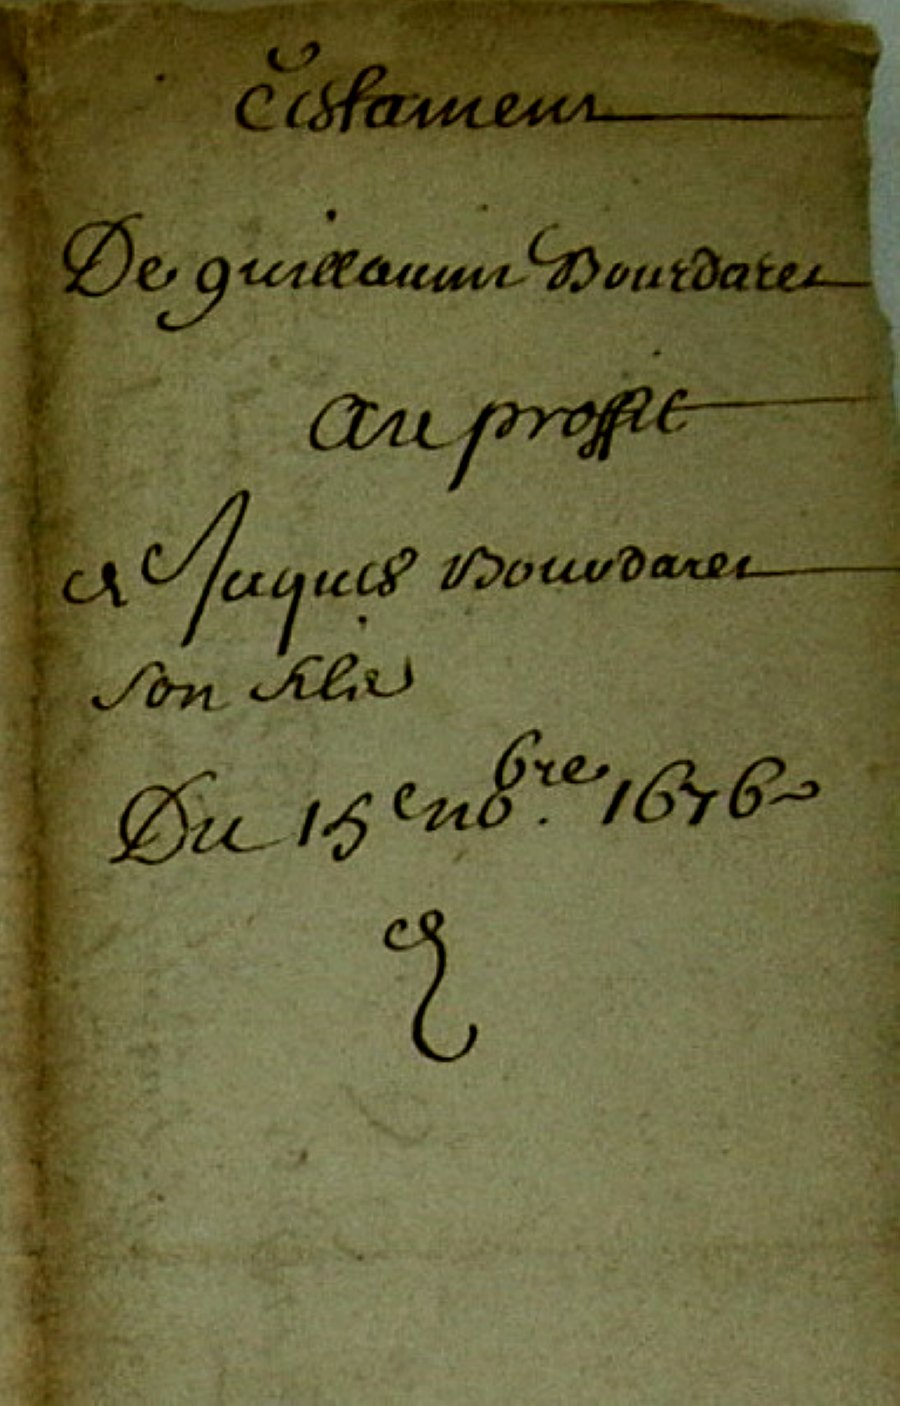 Testament
De guillaume Bourdaret
au proffit
de Jaques Bourdaret
son filz
Du 15e nobre 1676